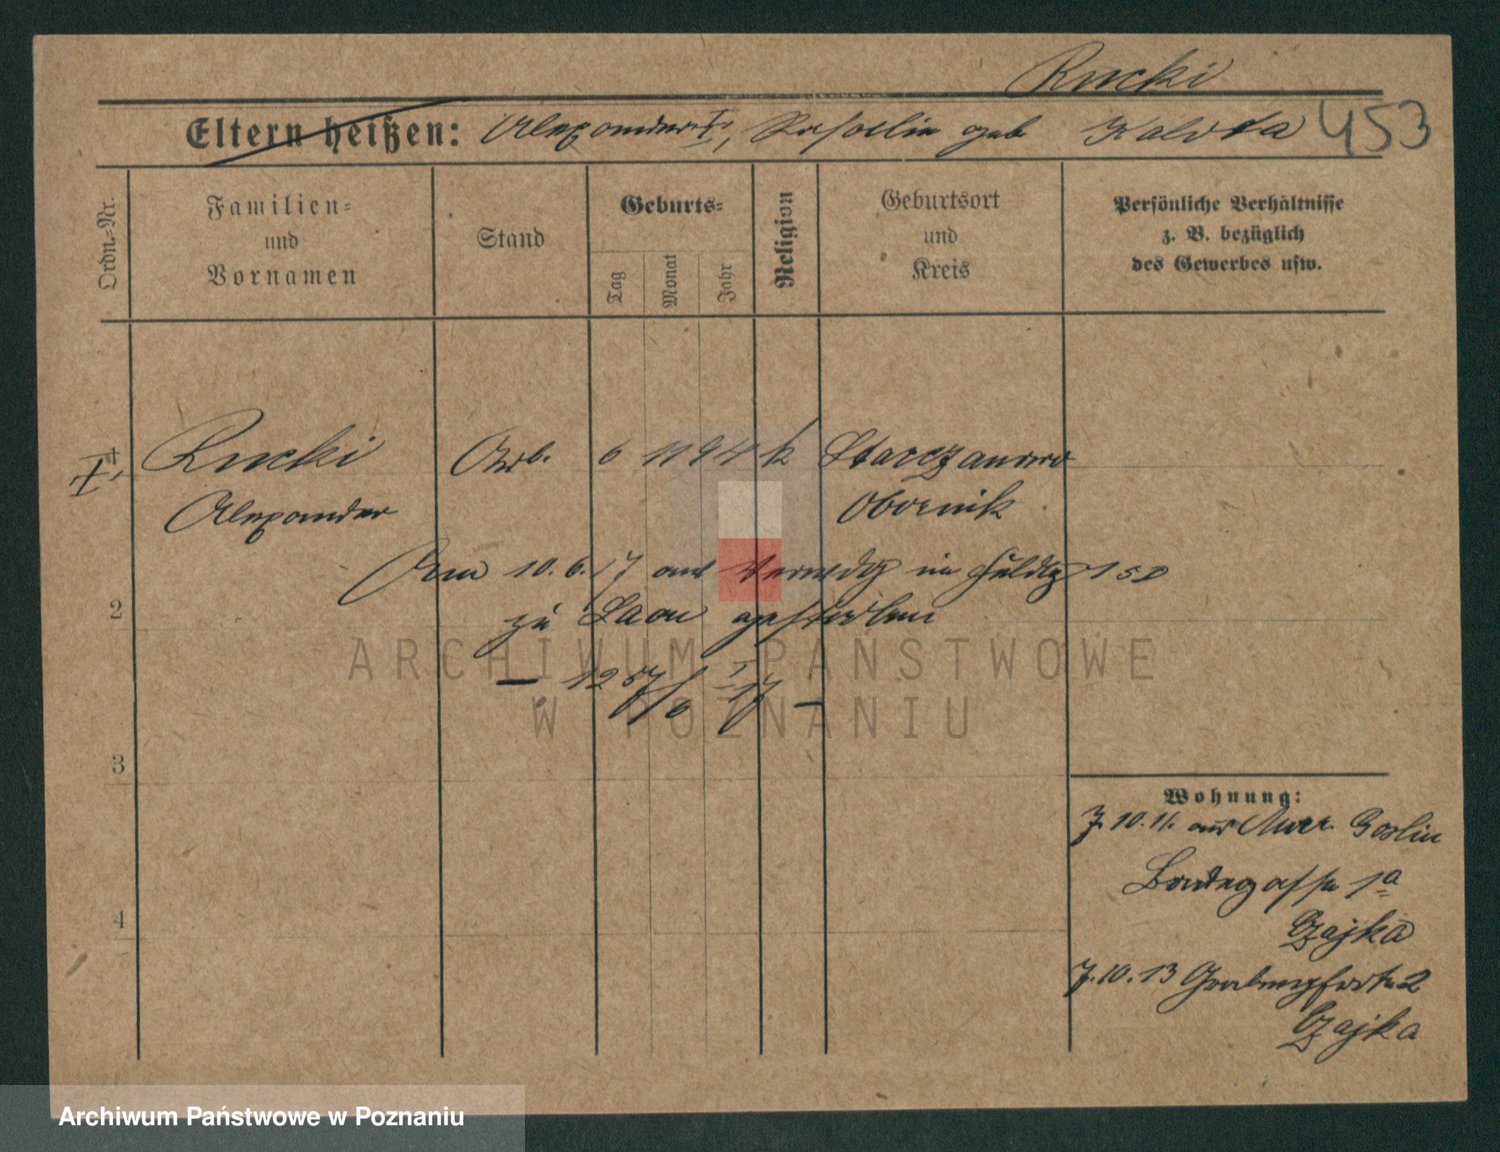 Rucki
Eltern heißen: Alexander I, geb Kalota 453
Ordn.-Nr.
Familien-
und
Vornamen
Stand
Geburts-
Tag
Monat
Jahr
Religion
Geburtsort
und
Kreis
Persönliche Verhältnisse
z. B. bezüglich
des Gewerbes usw.
1 Rucki Arb. 6 11 94 k
Alexander Obornik
Am 10.6.17 im Feldlz 150
2
zu Laon gestorben
ARCHIWUM PAŃSTWOWE
W POZNANIU
3
4
Wohnung:
7.10.11. aus Mur. Goslin
1a
Czajka
7.10.13 2
Czajka
Archiwum Państwowe w Poznaniu